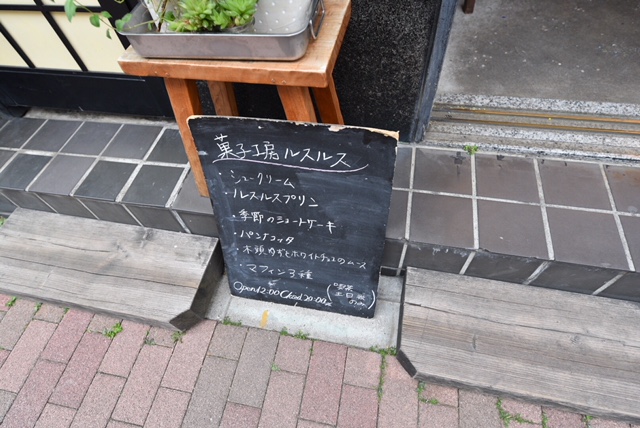 菓子工房 ルスルス
・シュークリーム
・ルスルスプリン
・季節のショートケーキ
・パンナコッタ
・木頭ゆずとホワイトチョコのムース
・マフィン3種
Open 12:00 Closed 20:00
喫茶
土日祝
のみ